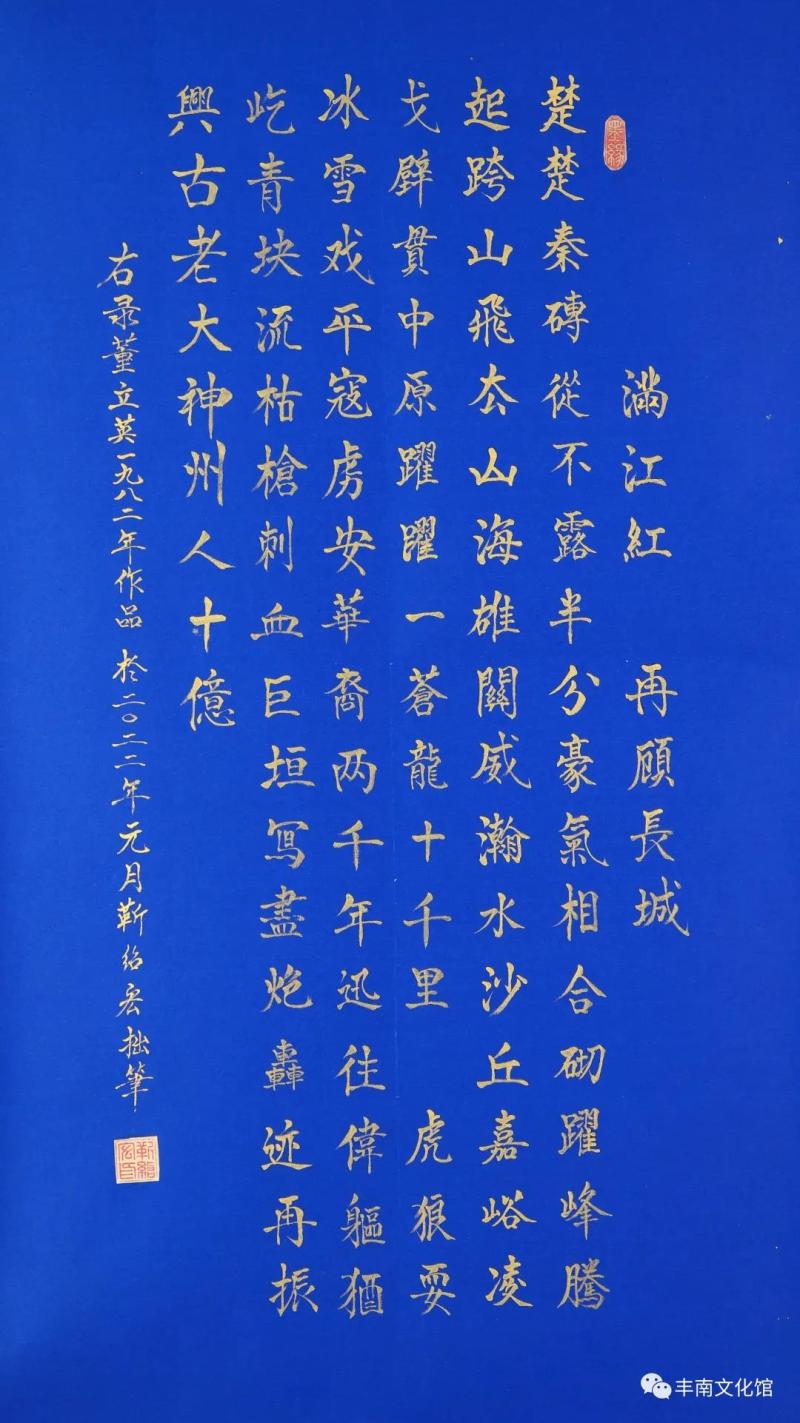 滿江紅 再頋長城
楚楚秦磚從不露半分豪氣相合砌躍峰騰
起跨山飛厺山海雄關威瀚水沙丘嘉峪凌
戈壁貫中原躍曜一蒼龍十千里 虎狼耍
冰雪戏平寇虏安華裔两千年迅往偉軀猶
屹青块流枯槍刺血巨垣冩盡炮轟迹再振
興古老大神州人十億
右录董立英一九八二年作品 於二〇二二年元月靳紹宏拙筆
丰南文化馆